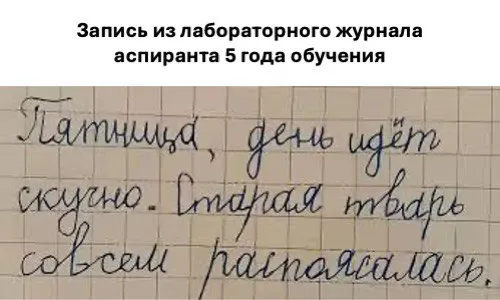 Запись из лабораторного журнала
аспиранта 5 года обучения
Пятница, день идёт
скучно. Старая тварь
совсем распоясалась.